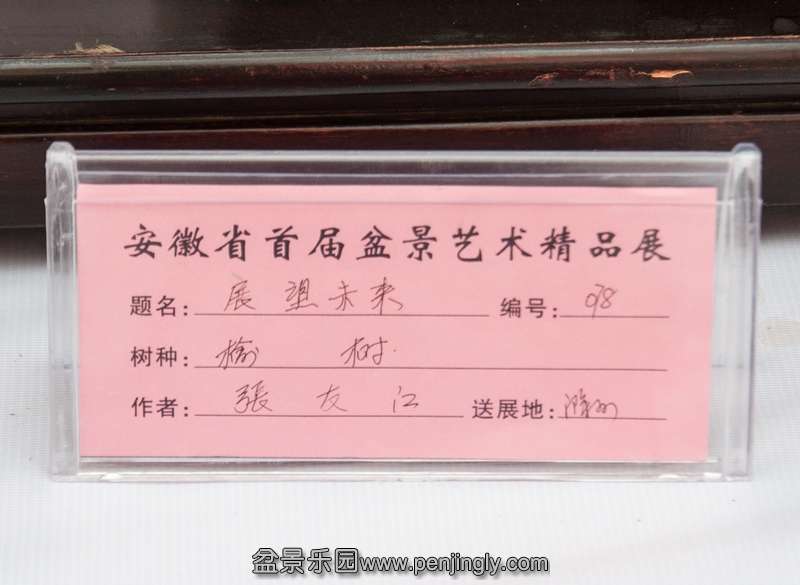 安徽省首届盆景艺术精品展
题名：展望未来 编号：078
树种：榆 树
作者：張友江 送展地：滁州
盆景乐园www.penjingly.com